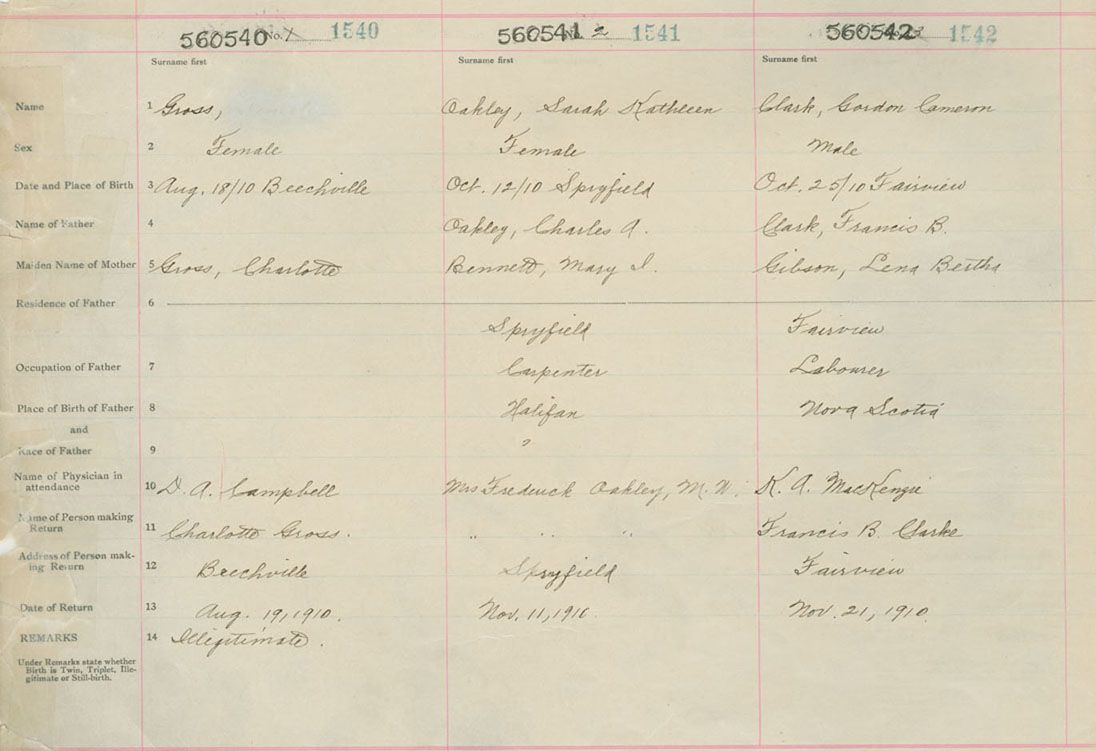 560540 No. 1 1540 560541 No. 2 1541 560542 1542
Surname first Surname first Surname first
Name 1 Gross, Oakley, Sarah Kathleen Clark, Gordon Cameron
Sex 2 Female Female Male
Date and Place of Birth 3 Aug. 18/10 Beechville Oct. 12/10 Spryfield Oct. 25/10 Fairview
Name of Father 4 Oakley, Charles A. Clark, Francis B.
Maiden Name of Mother 5 Gross, Charlotte Bennett, Mary I. Gibson, Lena Bertha
Residence of Father 6
Spryfield Fairview
Occupation of Father 7 Carpenter Labourer
Place of Birth of Father 8 Halifax Nova Scotia
and
Race of Father 9
Name of Physician in
attendance 10 D. A. Campbell Mrs Frederick Oakley, M. W. K. A. MacKenzie
Name of Person making
Return 11 Charlotte Gross. " " " Francis B. Clarke
Address of Person mak-
ing Return 12 Beechville Spryfield Fairview
Date of Return 13 Aug. 19, 1910. Nov. 11, 1910 Nov. 21, 1910.
REMARKS 14 Illegitimate.
Under Remarks state whether
Birth is Twin, Triplet, Ille-
gitimate or Still-birth.